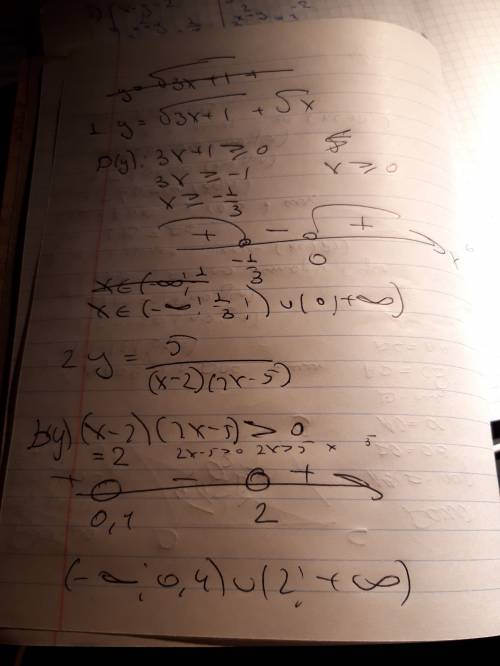 y = √3x+1 +
1 y = √3x+1 + √x
D(y): 3x+1 ≥ 0
3x ≥ -1 x ≥ 0
x ≥ -1/3
+ - +
-1/3 0 x
x ∈ (-∞; 1
x ∈ (-∞; 1/3;) ∪ (0; +∞)
2 y = 5/((x-2)(2x-5))
D(y) (x-2)(2x-5) > 0
=2 2x-5>0 2x>5 x 5
+ - +
0,4 2
(-∞; 0,4) ∪ (2; +∞)